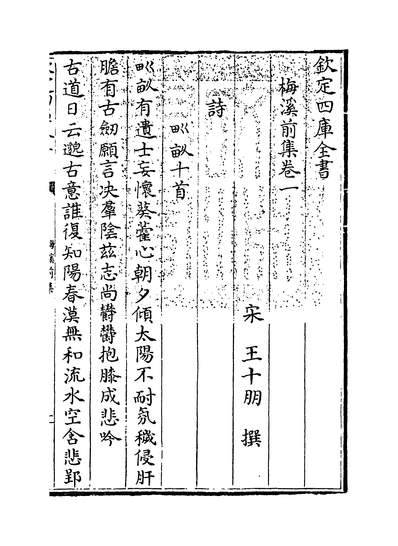 欽定四庫全書
梅溪前集卷一
宋 王十朋 撰
詩
畎畝十首
畎畝有遺士妄懷葵藿心朝夕傾太陽不耐氛穢侵肝
膽有古劒願言决羣陰兹志尚欝欝抱膝成悲吟
古道日云邈古意誰復知陽春漠無和流水空含悲郢
梅溪前集